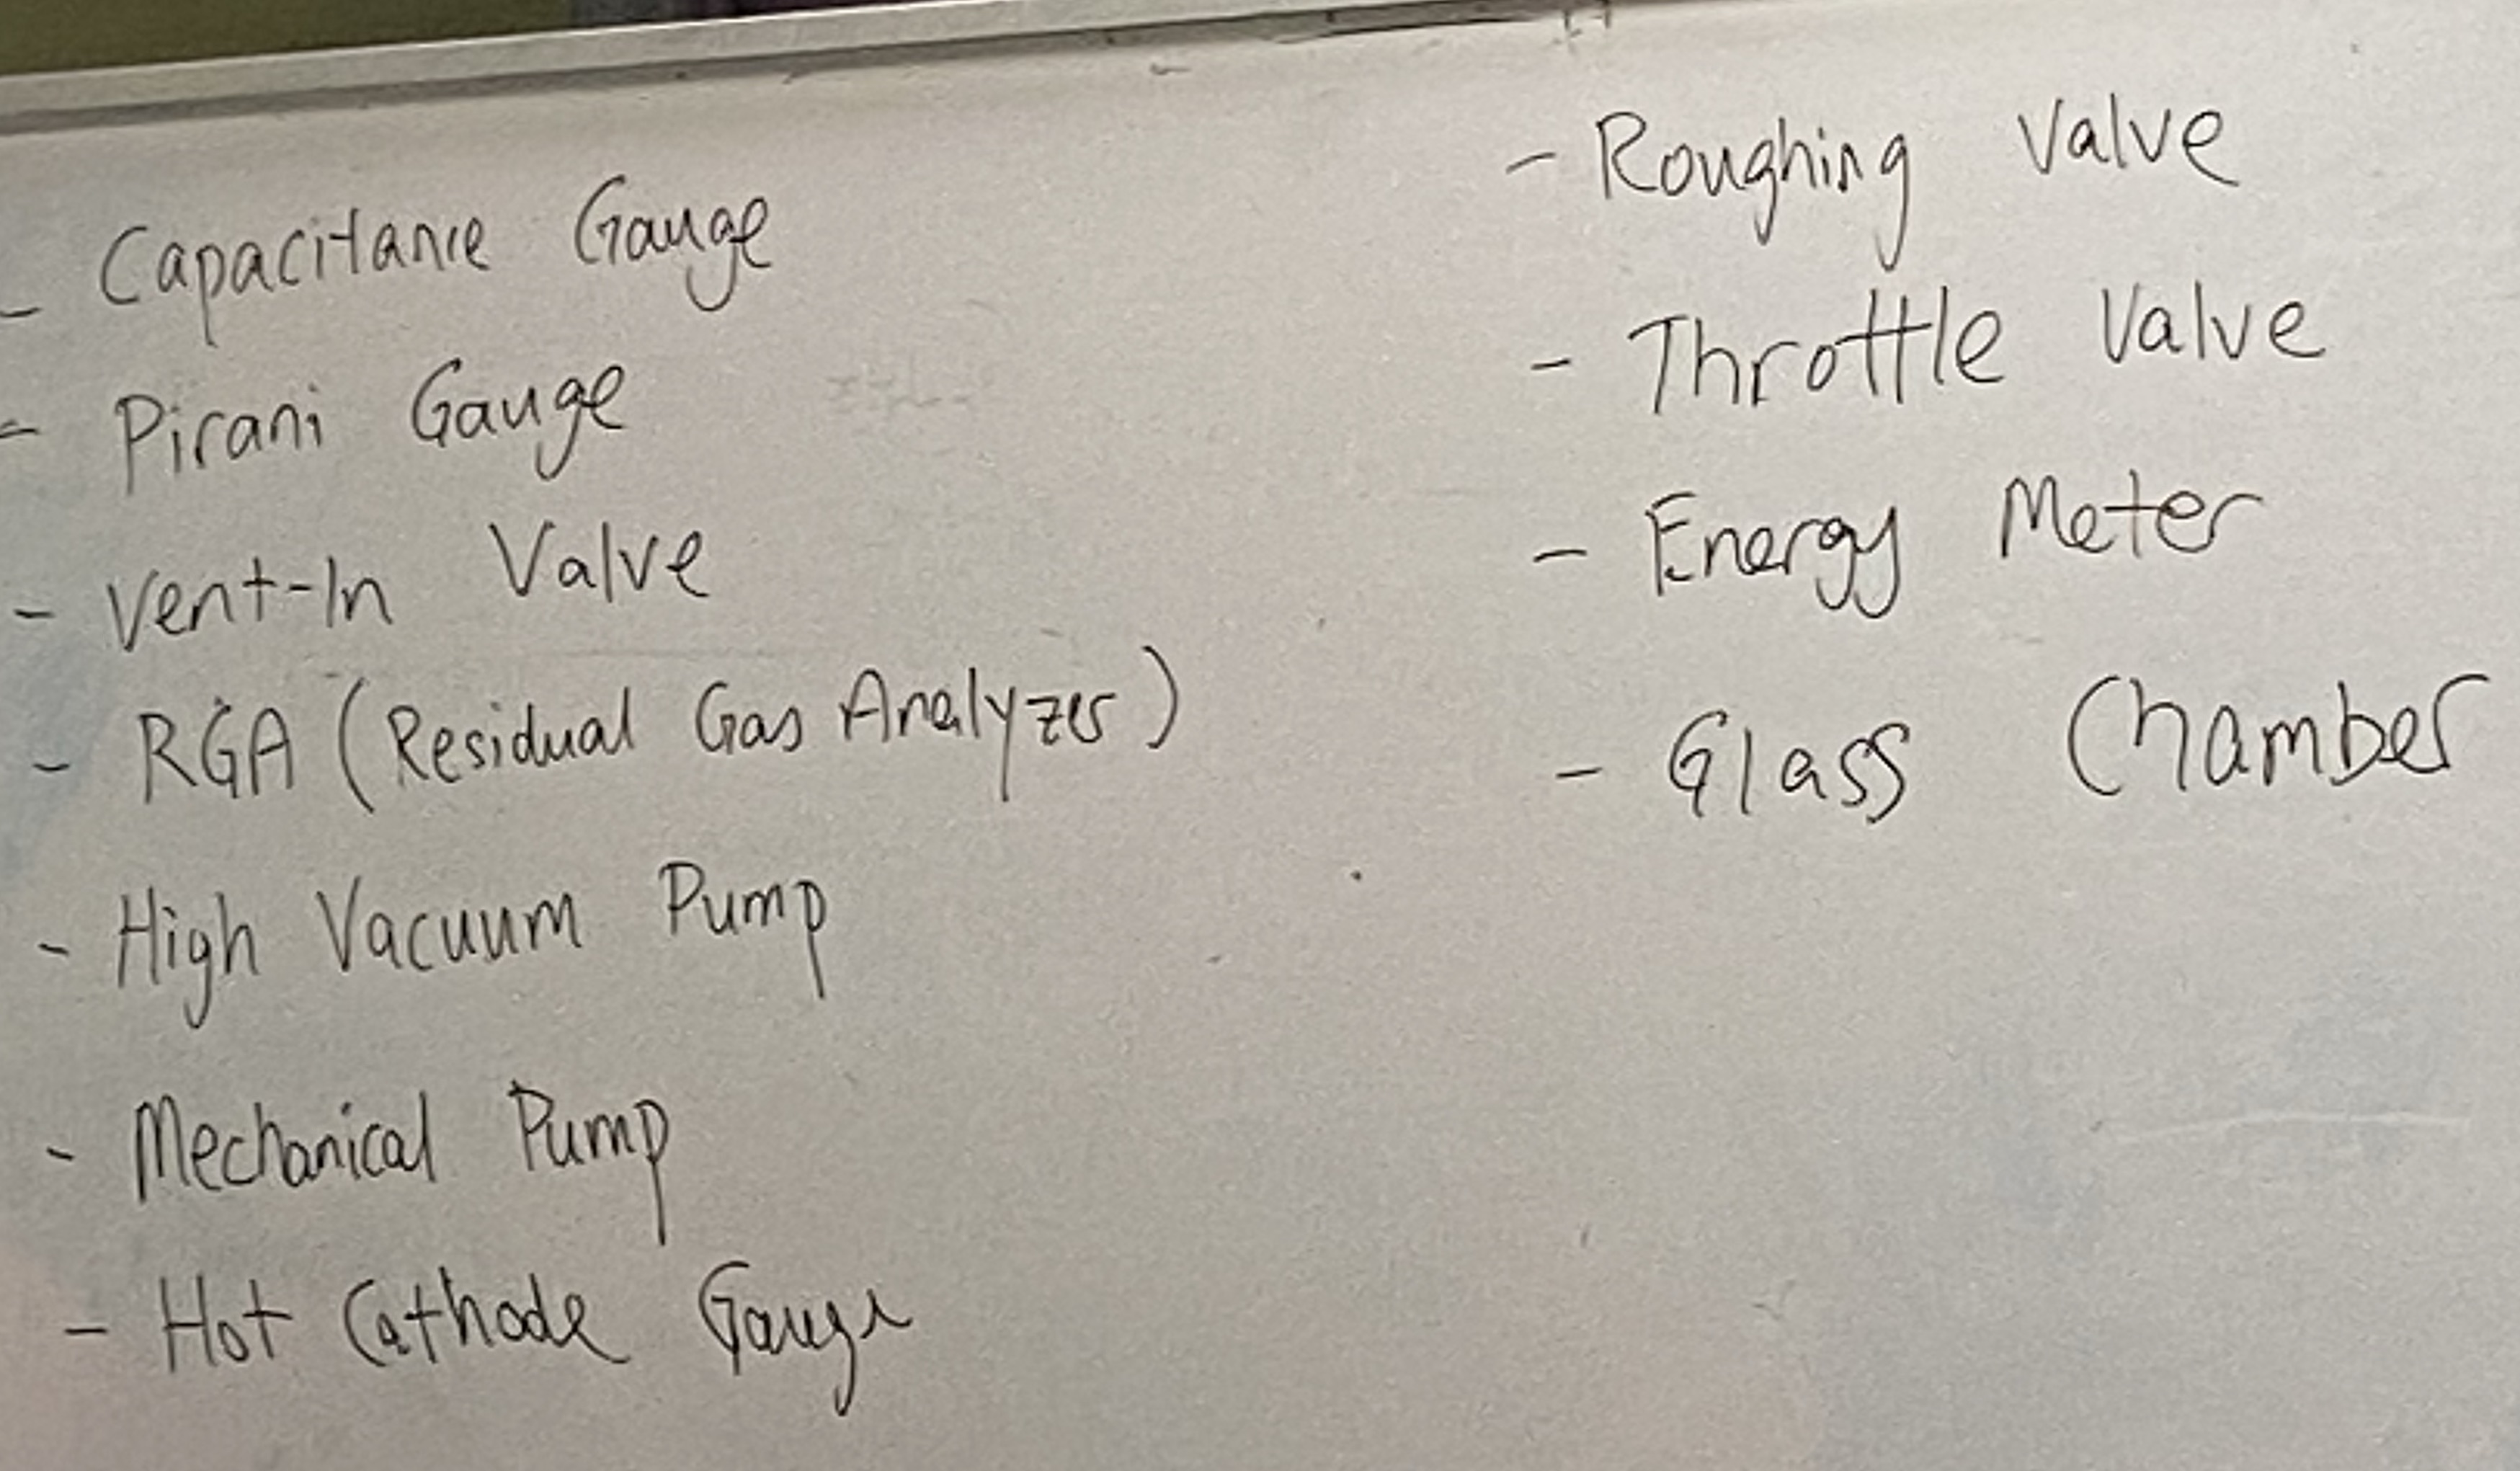 - Capacitance Gauge
- Pirani Gauge
- Vent-In Valve
- RGA (Residual Gas Analyzer)
- High Vacuum Pump
- Mechanical Pump
- Hot Cathode Gauge
- Roughing Valve
- Throttle Valve
- Energy Meter
- Glass Chamber